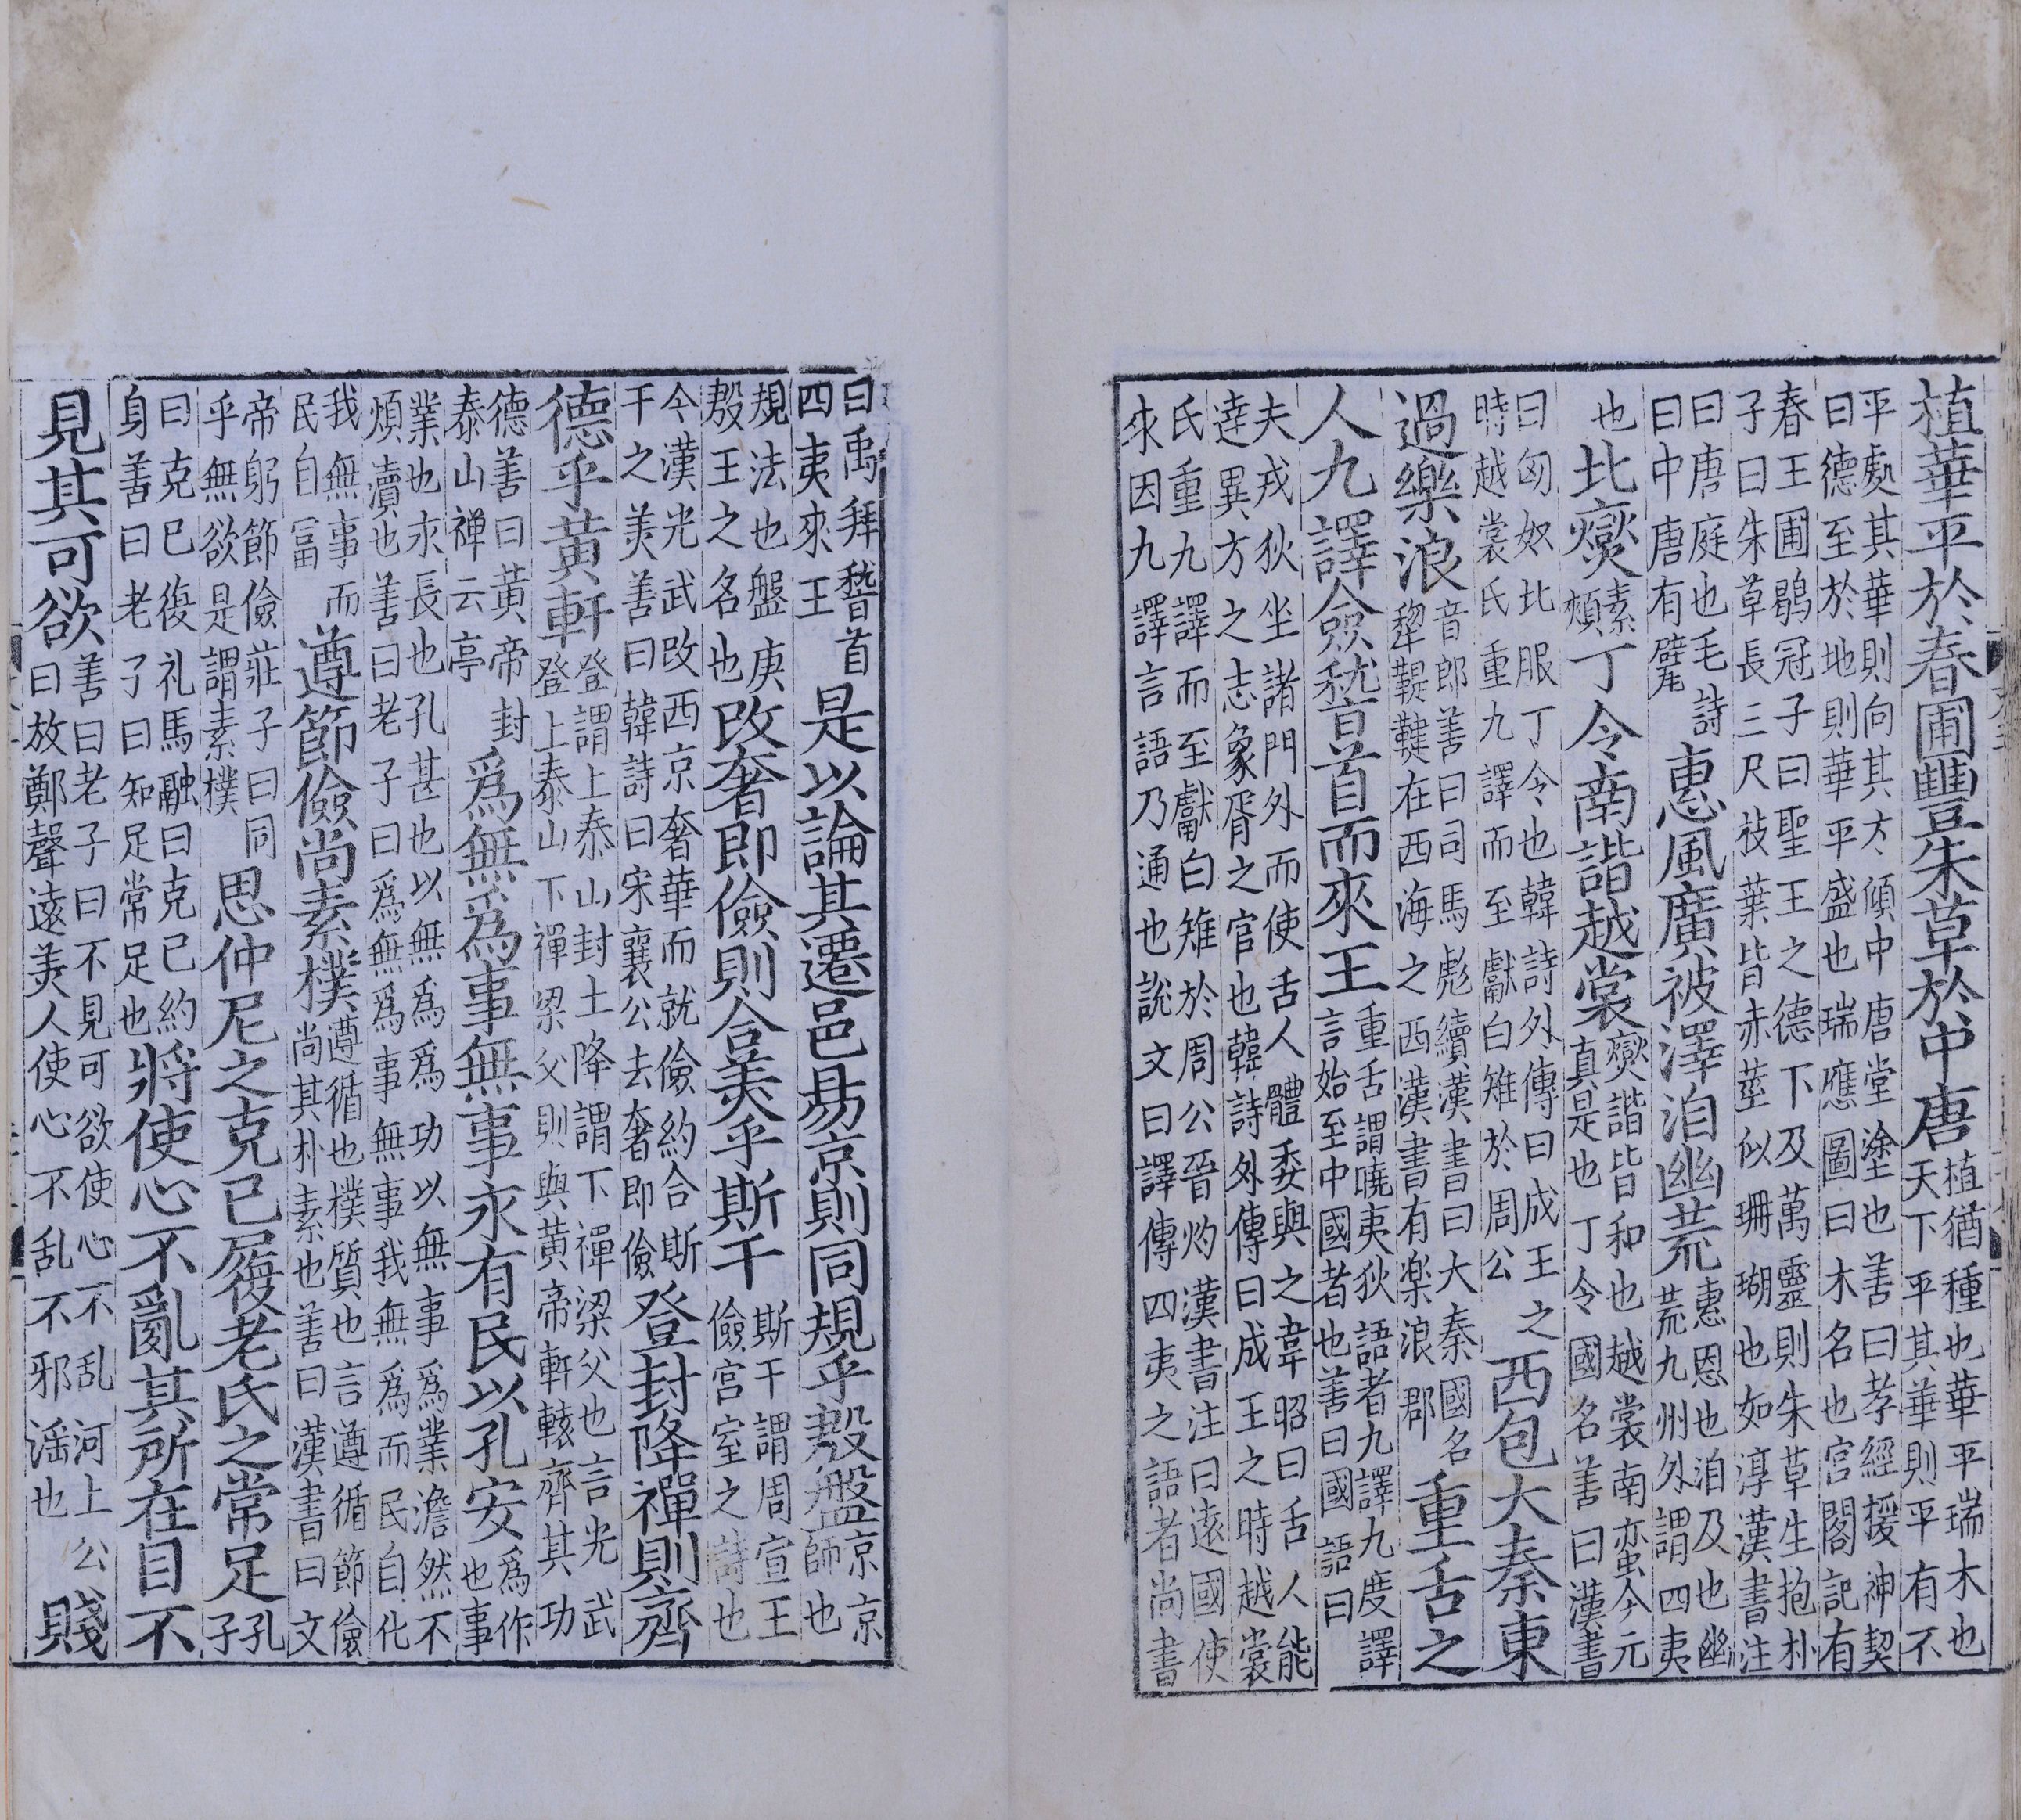 植華平於春圃豐朱草於中唐植猶種也華平瑞木也天下平其華則平有不
平處其華則向其方傾中唐堂塗也善曰孝經援神契曰德至於地則華平盛也瑞應圖曰木名也宮閣記有
春王圃鶡冠子曰聖王之德下及萬靈則朱草生抱朴子曰朱草長三尺枝葉皆赤莖似珊瑚也如淳漢書注
曰唐庭也毛詩曰中唐有甓惠風廣被澤洎幽荒惠恩也洎及也幽荒九州外謂四夷
也北燮素頰丁令南諧越裳燮諧皆和也越裳南蛮今元真是也丁令國名善曰漢書
曰匈奴北服丁令也韓詩外傳曰成王之時越裳氏重九譯而至獻白雉於周公西包大秦東
過樂浪音郎善曰司馬彪續漢書曰大秦國名犂鞮鞬在西海之西漢書有楽浪郡重舌之
人九譯僉嵇首而來王重舌謂曉夷狄語者九譯九度譯言始至中國者也善曰國語曰
夫戎狄坐諸門外而使舌人體委與之韋昭曰舌人能達異方之志象胥之官也韓詩外傳曰成王之時越裳
氏重九譯而至獻白雉於周公晉灼漢書注曰遠國使來因九譯言語乃通也說文曰譯傳四夷之語者尚書
曰禹拜嵇首四夷來王是以論其遷邑易京則同規乎殷盤京京師也
規法也盤庚殷王之名也改奢即儉則合美乎斯干斯干謂周宣王儉宮室之詩也
今漢光武改西京奢華而就儉約合斯干之美善曰韓詩曰宋襄公去奢即儉登封降禪則齊
德乎黃軒登謂上泰山封土降謂下禪梁父也言光武登上泰山下禪梁父則與黃帝軒轅齊其功
德善曰黃帝封泰山禅云亭爲無爲事無事永有民以孔安爲作也事
業也永長也孔甚也以無爲爲功以無事爲業澹然不煩瀆也善曰老子曰爲無爲事無事我無爲而民自化
我無事而民自冨遵節儉尚素樸遵循也樸質也言遵循節儉尚其朴素也善曰漢書曰文
帝躬節儉莊子曰同乎無欲是謂素樸思仲尼之克己履老氏之常足孔子
曰克己復礼馬融曰克己約身善曰老子曰知足常足也將使心不亂其所在目不
見其可欲善曰老子曰不見可欲使心不乱河上公曰放鄭聲遠美人使心不乱不邪滛也賤